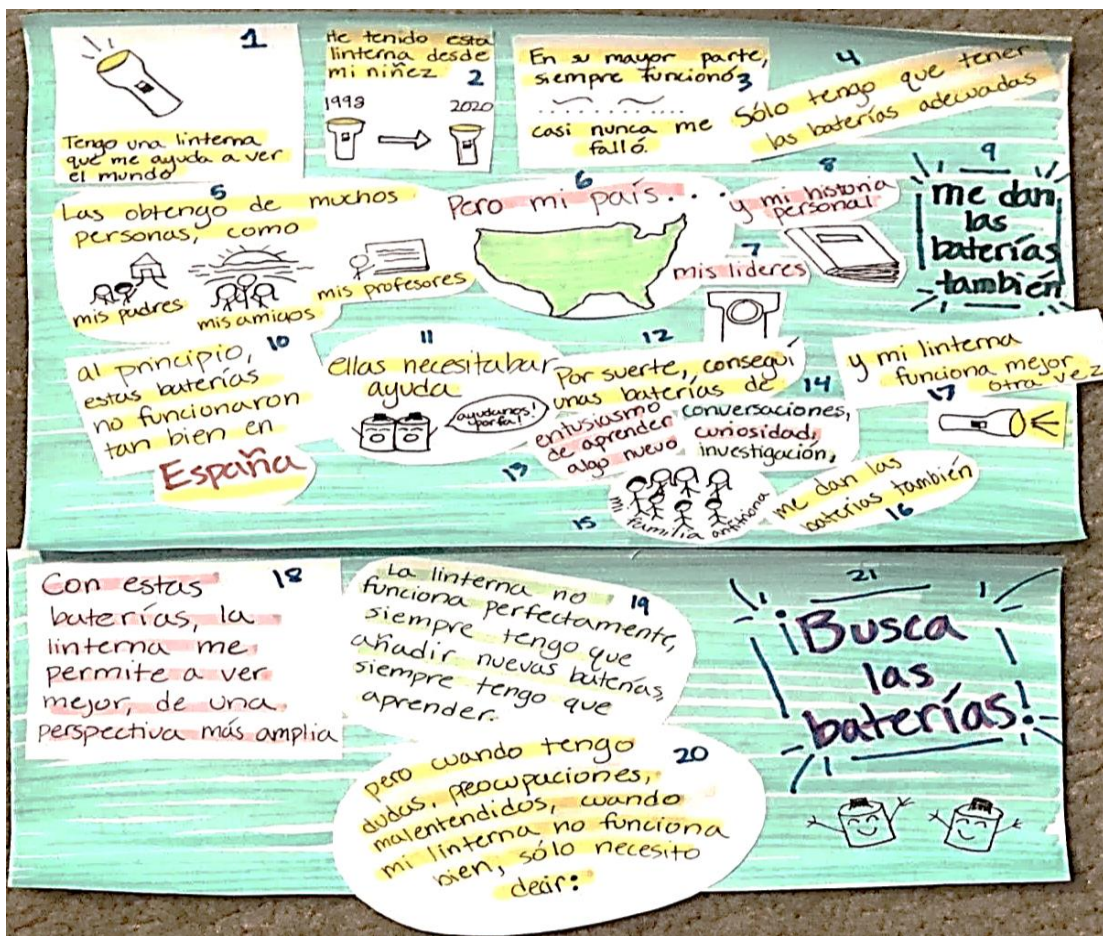 1
Tengo una linterna
que me ayuda a ver
el mundo
He tenido esta
linterna desde
mi niñez
2
1998
2020
En su mayor parte,
siempre funcionó
3
casi nunca me
falló.
4
Sólo tengo que tener
las baterías adecuadas
5
Las obtengo de muchos
personas, como
mis padres
mis amigos
mis profesores
6
Pero mi país...
7
mis lideres
8
y mi historia
personal
9
me dan
las
baterías
también
10
al principio,
estas baterías
no funcionaron
tan bien en
España
11
ellas necesitabar
ayuda
ayudanos!
porfa!
12
Por suerte, conseguí
unas baterías de
13
entusiasmo
de aprender
algo nuevo
14
conversaciones,
curiosidad,
investigación,
15
mi familia anfitriona
me dan las
baterías también
16
y mi linterna
funciona mejor
otra vez
17
18
Con estas
baterías, la
linterna me
permite a ver
mejor, de una
perspectiva más amplia
La linterna no
funciona perfectamente,
19
siempre tengo que
añadir nuevas baterías,
siempre tengo que
aprender.
20
pero cuando tengo
dudas, preocupaciones,
malentendidos, cuando
mi linterna no funciona
bien, sólo necesito
decir:
21
¡Busca
las
baterías!